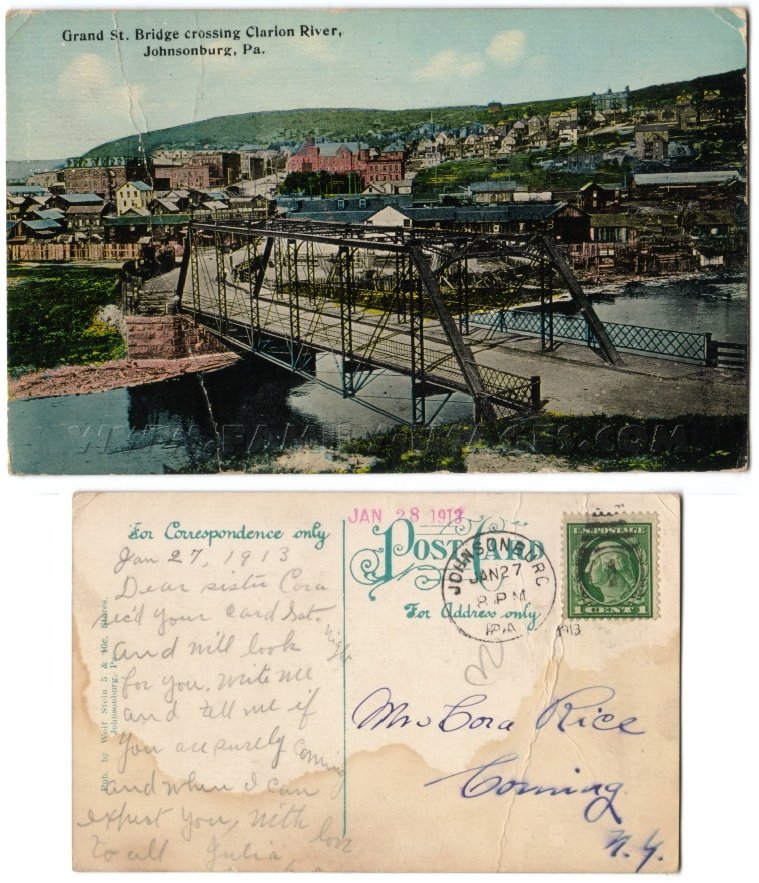 Grand St. Bridge crossing Clarion River,
Johnsonburg, Pa.
WWW.FAMILY-IMAGES.COM
For Correspondence only
Jan 27, 1913
Dear sister Cora
rec'd your card Sat.
night
and will look
for you. write me
and tell me if
you are surely coming
and when I can
expect you, with love
to all Julia
Pub. by Wolf Stein 5 & 10c. Stores,
Johnsonburg, Pa.
JAN 28 1913
POST CARD
For Address only
JOHNSONBURG
JAN 27
8 PM
PA
1913
U.S. POSTAGE
1 CENT 1
Mrs Cora Rice
Corning
N.Y.